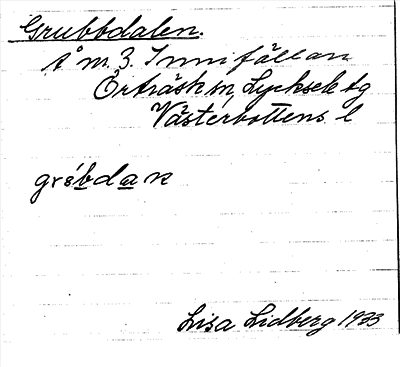 Grubbdalen.
å m. 3. Innifällan
Örträsk sn, Lycksele tg
Västerbottens l
gr​ébdan
Lisa Lidberg 1933